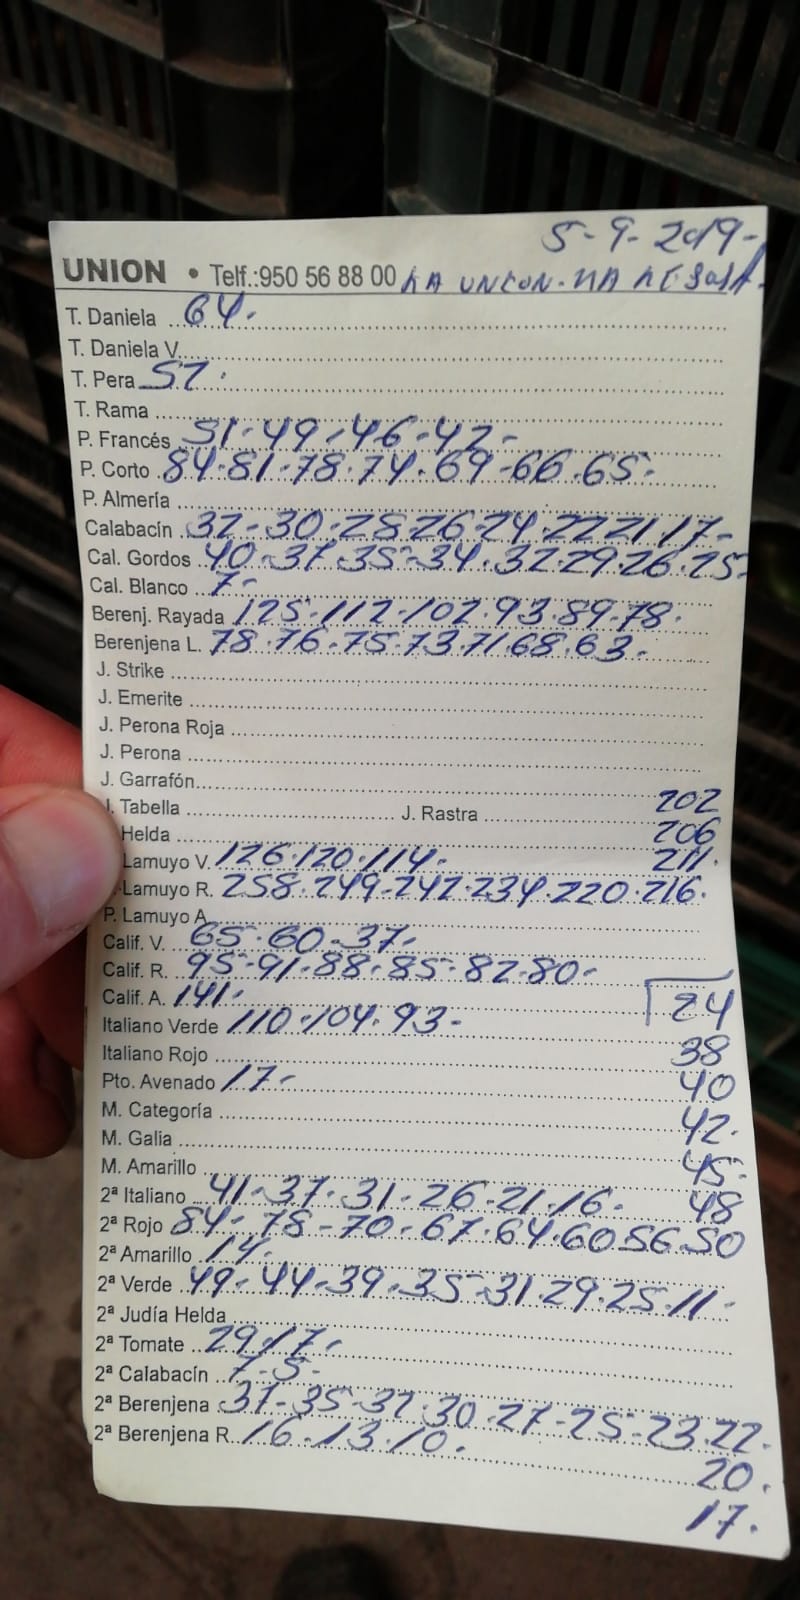 5-9-2019-
UNION • Telf.:950 56 88 00 LA UNION.
T. Daniela 64.
T. Daniela V.
T. Pera 57.
T. Rama
P. Francés 51-49-46-42-
P. Corto 84.81.78.74.69-66.65-
P. Almería
Calabacín 32-30-28.26-24.22.21.17-
Cal. Gordos 40-37.35-34.32.29.26.25-
Cal. Blanco 7-
Berenj. Rayada 125-112-102.93.89.78.
Berenjena L. 78.76.75.73.71.68.63-
J. Strike
J. Emerite
J. Perona Roja
J. Perona
J. Garrafón
J. Tabella J. Rastra 202
Helda 206
Lamuyo V. 126.120.114- 211.
Lamuyo R. 258.249-242.234.220.216.
P. Lamuyo A.
Calif. V. 65-60-37-
Calif. R. 95-91.88.85-82.80-
Calif. A. 141- 24
Italiano Verde 110-104.93-
Italiano Rojo 38
Pto. Avenado 17- 40
M. Categoría 42.
M. Galia
M. Amarillo 45-
2ª Italiano 41-37.31-26.21.16- 48
2ª Rojo 84-78-70-67.64.60.56.50
2ª Amarillo 14-
2ª Verde 49-44-39.35-31.29.25.11-
2ª Judía Helda
2ª Tomate 29.17-
2ª Calabacín 7-5-
2ª Berenjena 37-35-32.30-27-25-23.22-
2ª Berenjena R. 16.13.10.
20.
17.